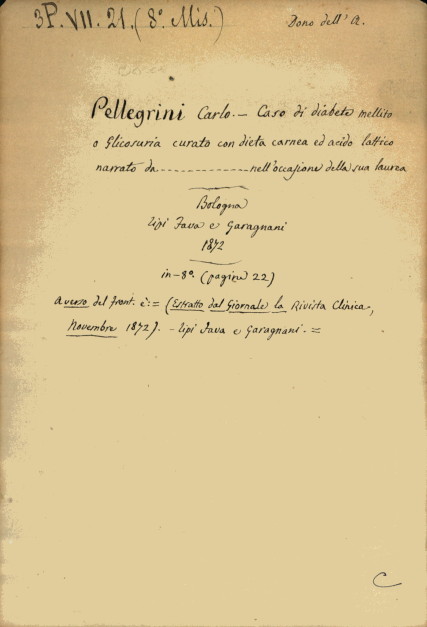 3P. VII. 21. (8º. Mis.)
Dono dell' A.
Pellegrini Carlo. — Caso di diabete mellito
o Glicosuria curato con dieta carnea ed acido lattico
narrato da ---------------- nell'occasione della sua laurea
Bologna
tipi Fava e Garagnani
1872
in-8º. (pagine 22)
a verso del front. è: = (Estratto dal Giornale la Rivista Clinica,
Novembre 1872). - tipi Fava e Garagnani. =
C